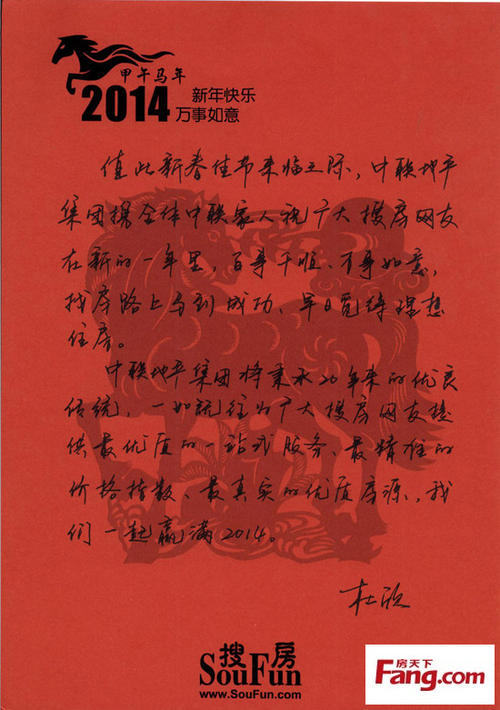 甲午马年
2014 新年快乐
万事如意
值此新春佳节来临之际，中联地平
集团携全体中联家人祝广大搜房网友
在新的一年里，百事干顺、万事如意，
找房路上马到成功、早日觅得理想
住房。
中联地平集团将秉承20年来的优良
传统，一如既往为广大搜房网友提
供最优质的一站式服务、最精准的
价格指数、最真实的优质房源，我
们一起赢满2014。
杜欣
搜房
SouFun
www.SouFun.com
房天下
Fang.com